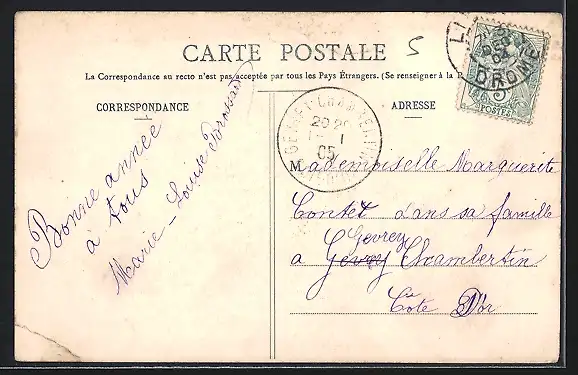 CARTE POSTALE
5
La Correspondance au recto n'est pas acceptée par tous les Pays Étrangers. (Se renseigner à la
CORRESPONDANCE
ADRESSE
Bonne année
à tous
Marie - Louise
GEVREY CHAMBERTIN
05
DROME
5
POSTES
Mademoiselle Marguerite
Contet dans sa famille
Gevrey
a Gevrey Chambertin
Côte D'or